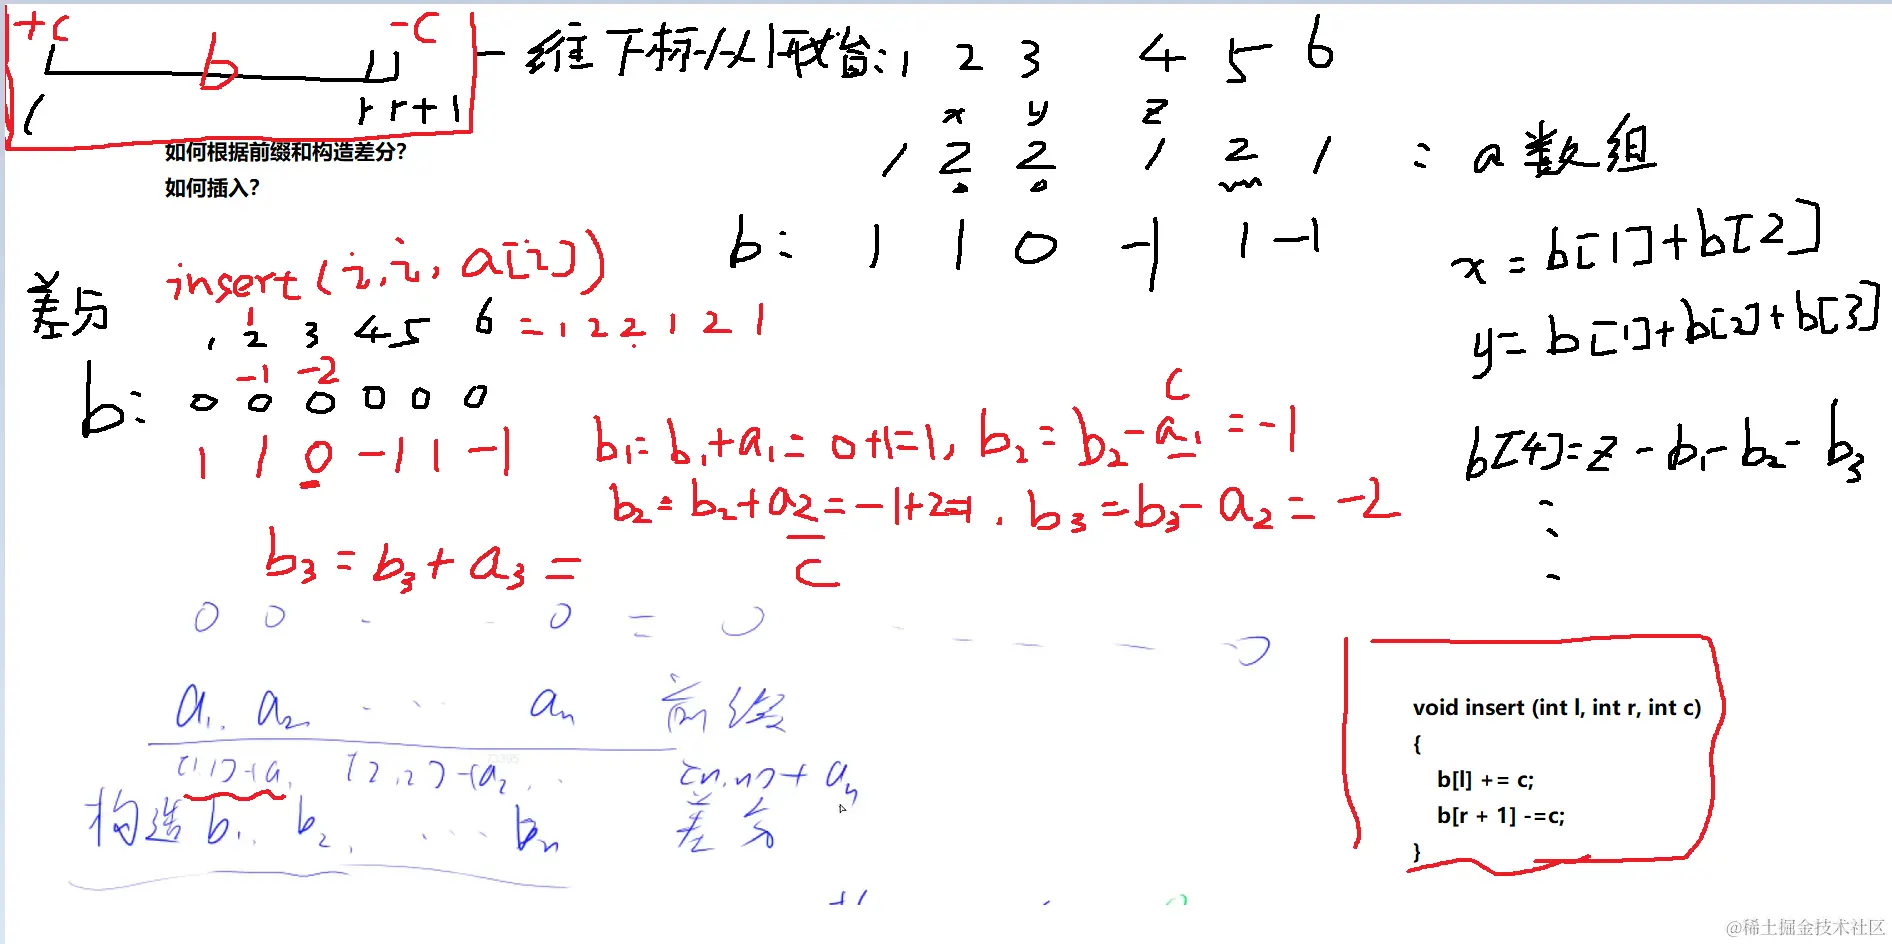 +c b -c
l r r+1
一维下标从1开始: 1 2 3 4 5 6
x y z
如何根据前缀和构造差分?
1 2 2 1 2 1 : a数组
如何插入?
b: 1 1 0 -1 1 -1
x = b[1]+b[2]
y = b[1]+b[2]+b[3]
b[4]=z-b1-b2-b3
差分
insert(i,i,a[i])
1
1 2 3 4 5 6 = 1 2 2 1 2 1
-1 -2
b: 0 0 0 0 0 0
1 1 0 -1 1 -1
c
b1=b1+a1=0+1=1, b2=b2-a1=-1
b2=b2+a2=-1+2=1. b3=b3-a2=-2
c
b3=b3+a3=
0 0 0 = 0 0
a1, a2 ... an 前缀
(1,1)+a1 (2,2)+a2 (n,n)+an
构造 b1, b2, ... bn 差分
void insert (int l, int r, int c)
{
b[l] += c;
b[r + 1] -=c;
}
@稀土掘金技术社区